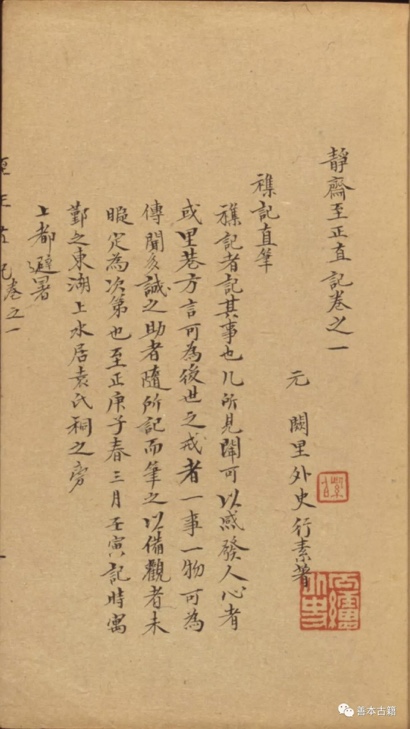 靜齋至正直記卷之一
元 闕里外史行素著
襍記直筆
襍記者記其事也凡所見聞可以感發人心者
或里巷方言可為後世之戒者一事一物可為
傳聞多識之助者隨所記而筆之以備觀者未
暇定為次第也至正庚子春三月壬寅記時寓
鄞之東湖上水居袁氏祠之旁
上都避暑
至正直記卷之一
善本古籍